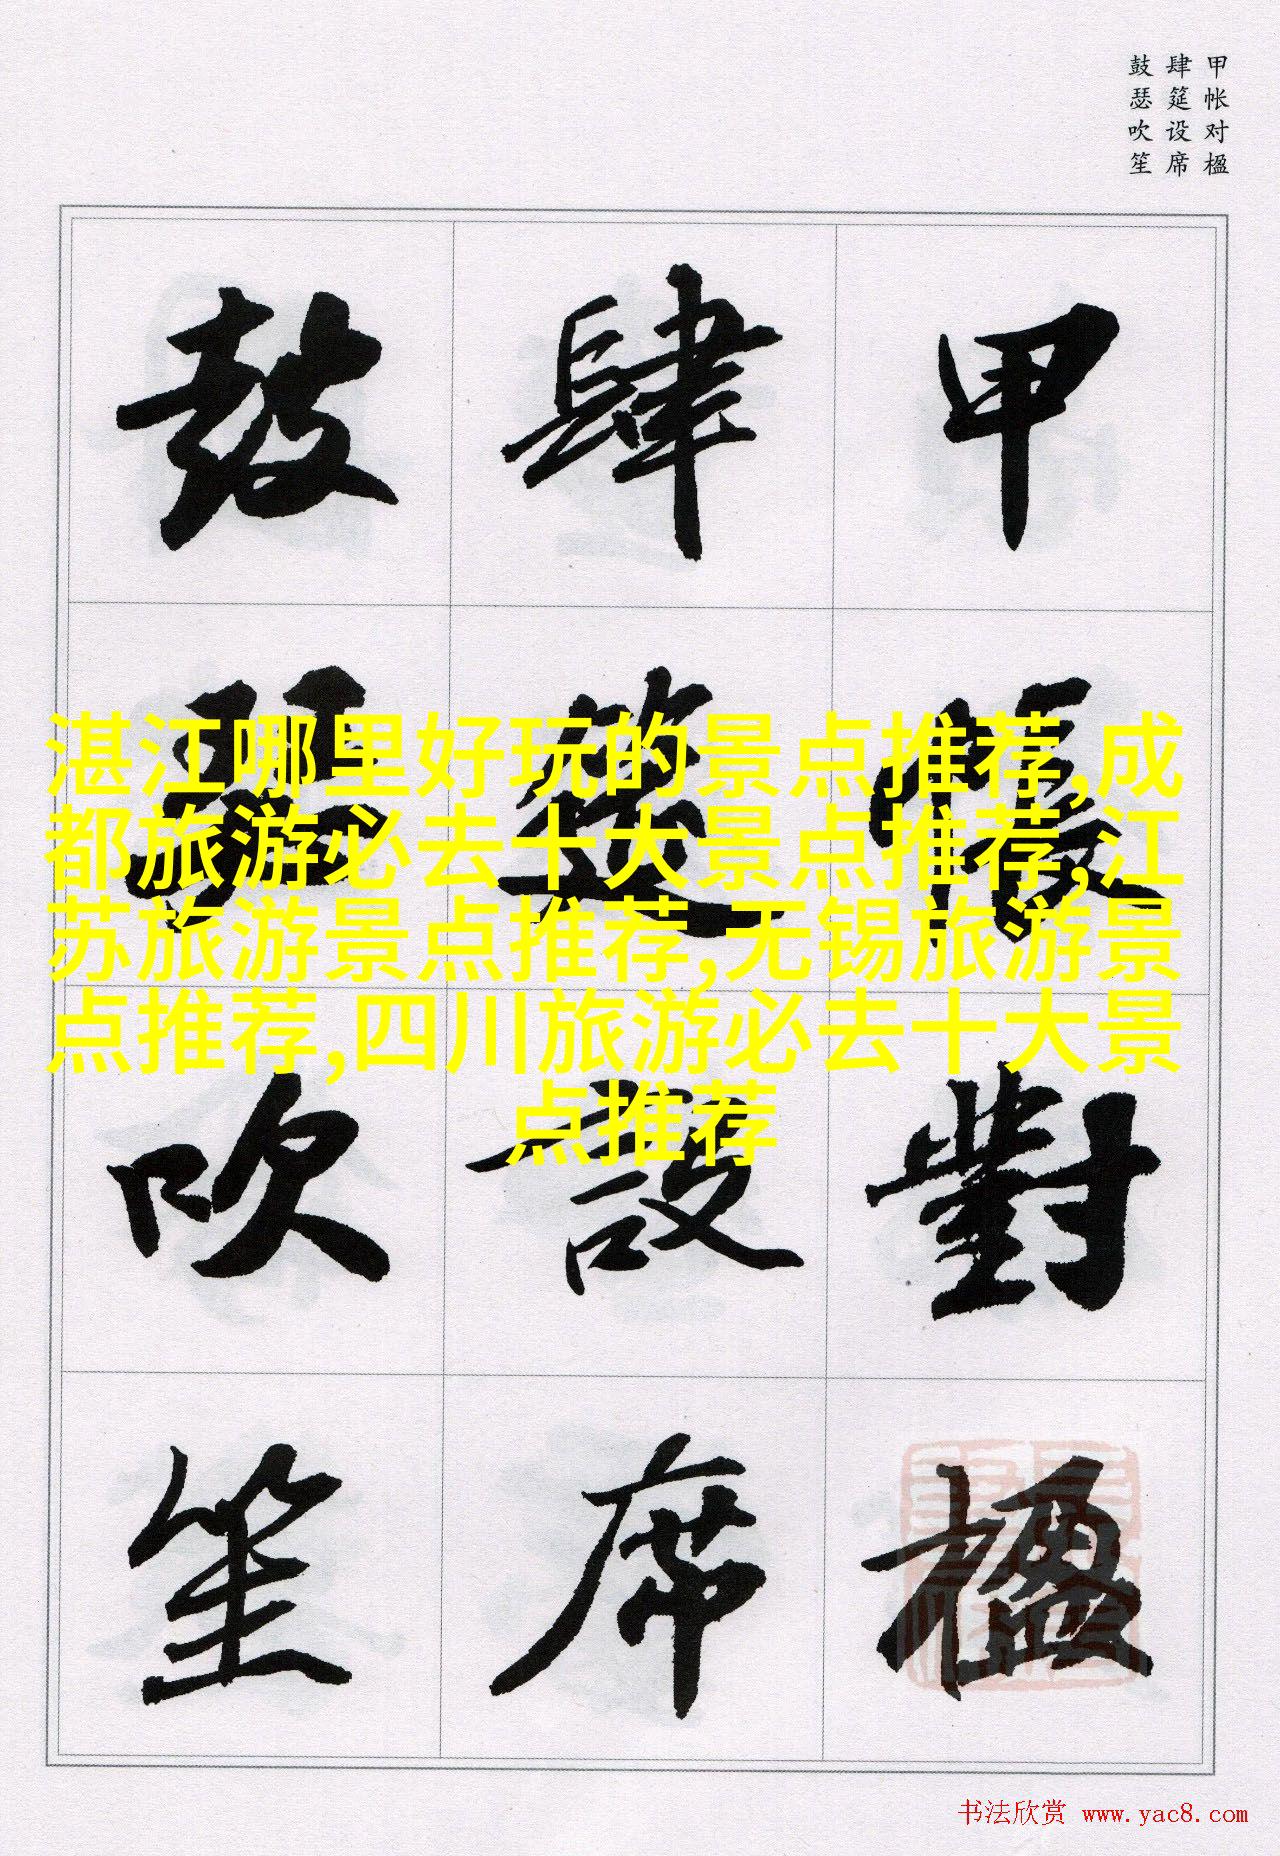 甲帐对楹
肆筵设席
鼓瑟吹笙
甲帳對楹
肆筵設席
鼓瑟吹笙
湛江哪里好玩的景点推荐,成
都旅游必去十大景点推荐,江
苏旅游景点推荐,无锡旅游景
点推荐,四川旅游必去十大景
点推荐
书法欣赏 www.yac8.com